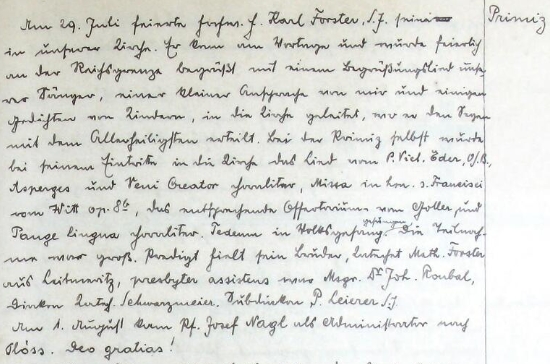 Am 29. Juli feierte hochw. H. Karl Forster, S.J. seine Primiz
in unserer Kirche. Er kam am Vortage und wurde feierlich
an der Reichsgrenze begrüßt mit einem Begrüßungslied unse-
rer Sänger, einer kleinen Ansprache von mir und einigen
Gedichten von Kindern, in die Kirche geleitet, wo er den Segen
mit dem Allerheiligsten erteilt. Bei der Primiz selbst wurde
bei seinem Eintritte in die Kirche das Lied von P. Vict. Eder, O.S.B.,
Asperges und Veni Creator choraliter, Missa in hon. s. Francisci
vom Witt op. 8b, das entsprechende Offertorium von Goller, und
Pange lingua choraliter. Tedeum in Volksgesang gesungen. Die Teilnah-
me war groß. Predigt hielt sein Bruder, Katechet Math. Forster
aus Leitmeritz, presbyter assistens war Msgr. Dr Joh. Roubal,
Diakon Katech. Schwarzmeier. Subdiakon P. Leierer S.J.
Am 1. August kam Pf. Josef Nagl als Administrator nach
Plöss. Deo gratias!